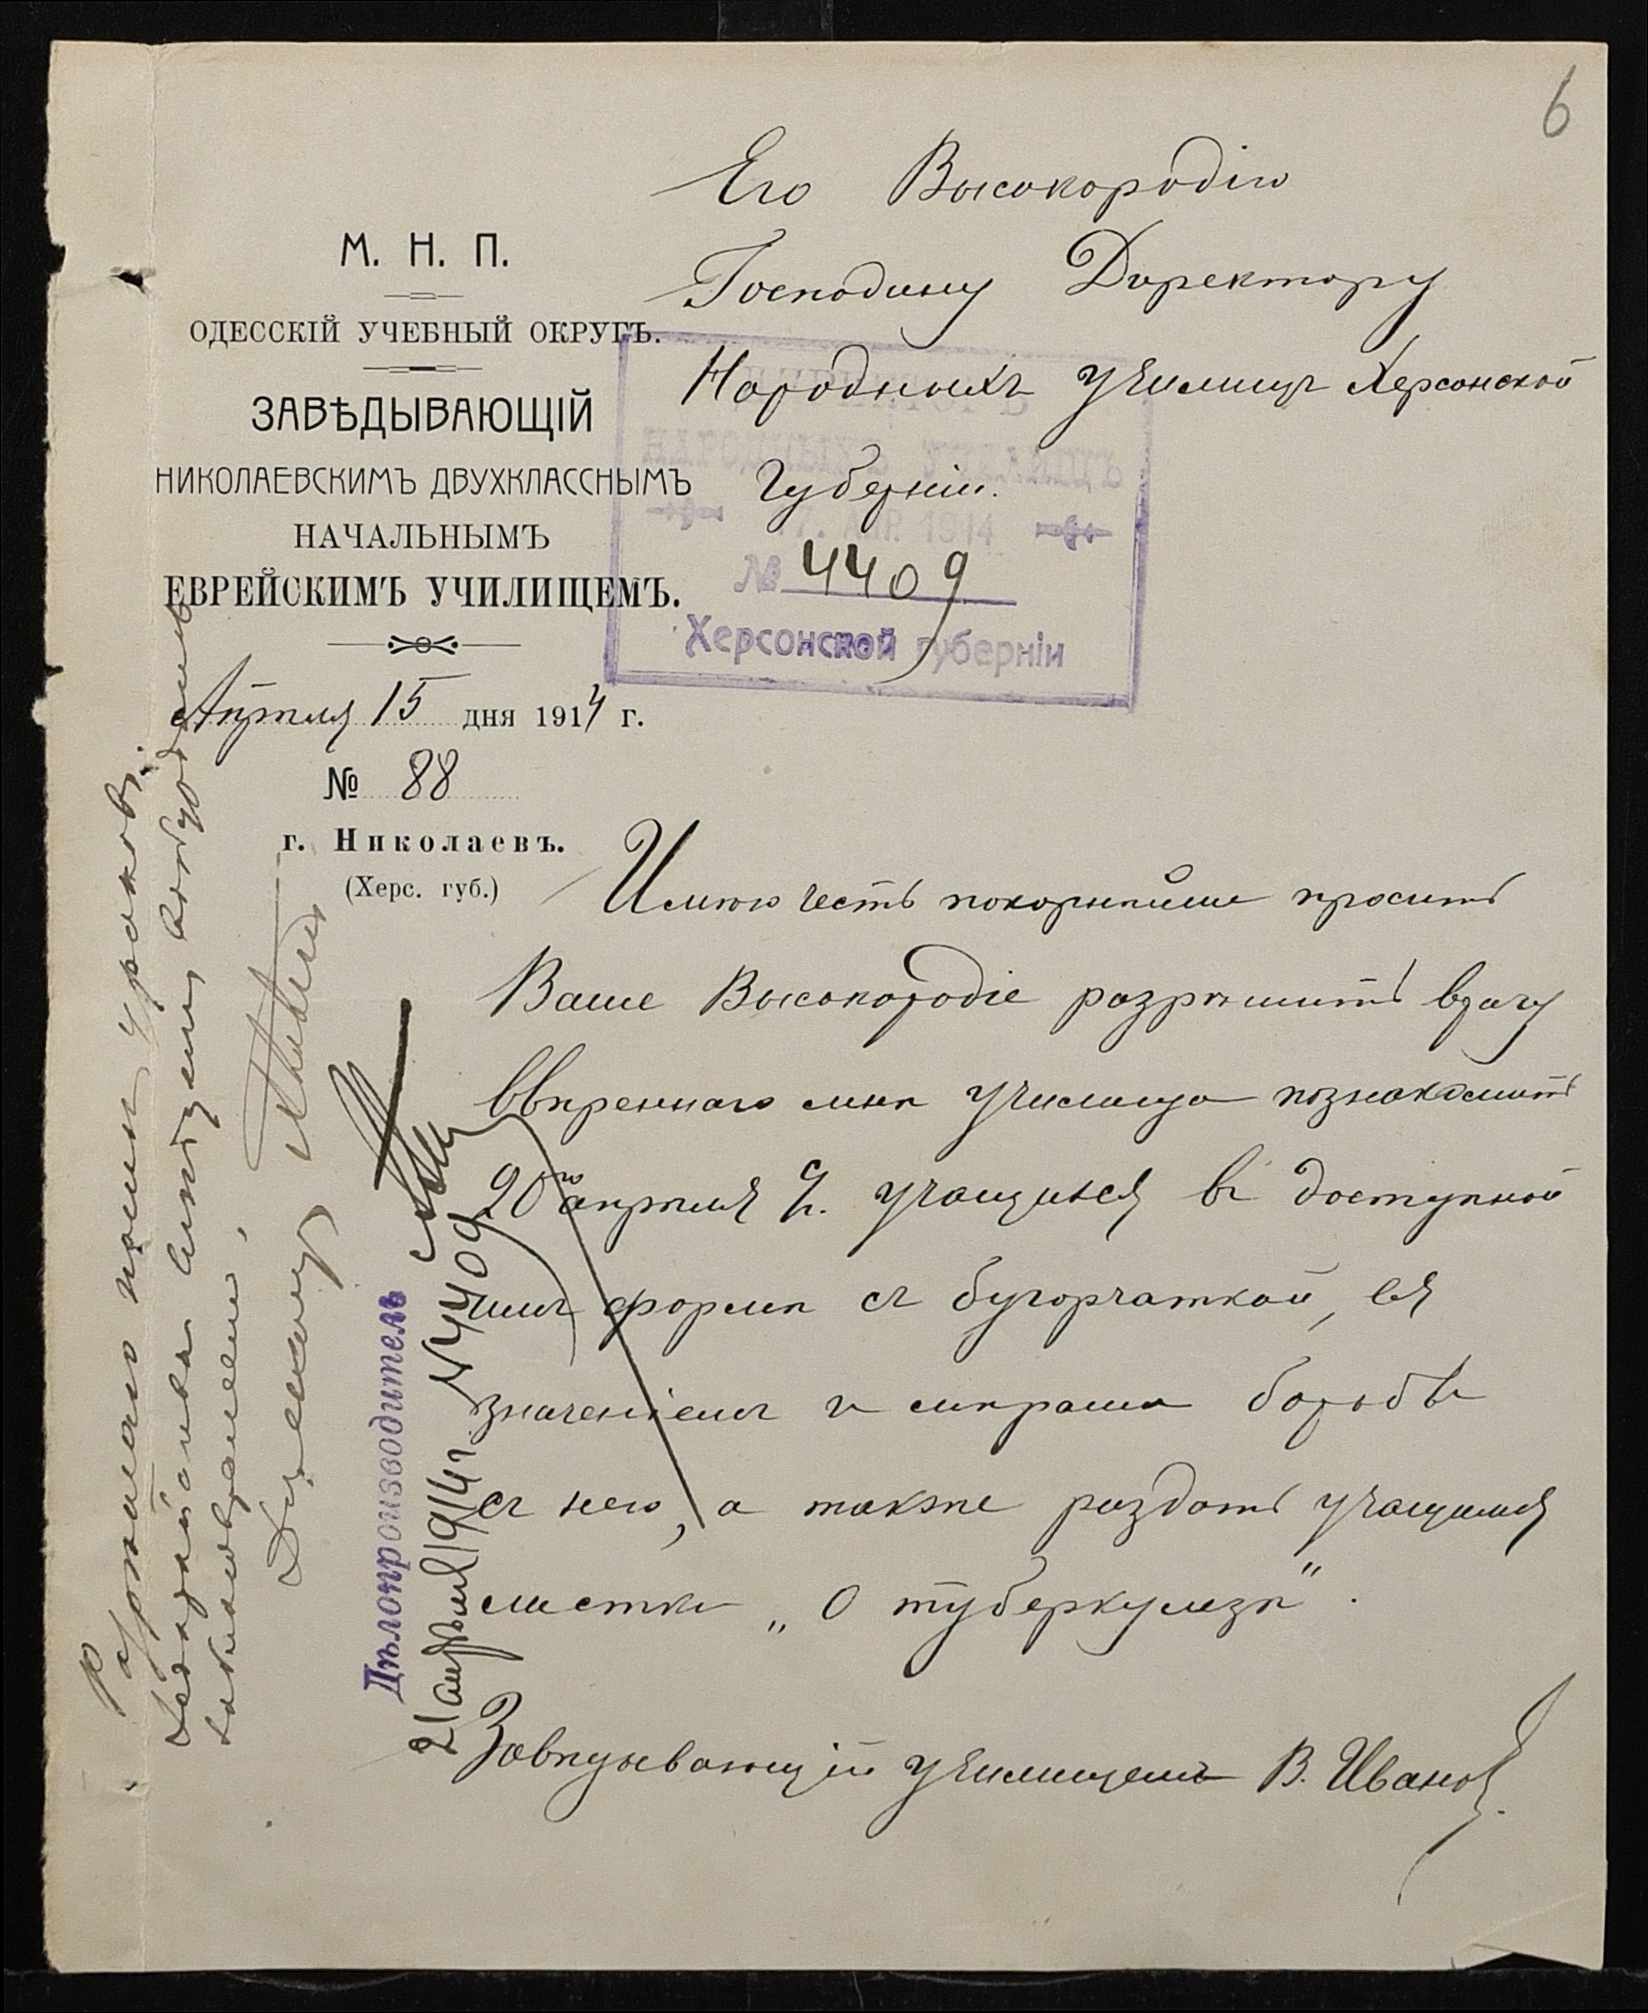 6
Его Высокородію
Господину Директору
Народныхъ училищъ Херсонской
Губерніи.
М. Н. П.
ОДЕССКІЙ УЧЕБНЫЙ ОКРУГЪ.
ЗАВѢДЫВАЮЩІЙ
НИКОЛАЕВСКИМЪ ДВУХКЛАССНЫМЪ
НАЧАЛЬНЫМЪ
ЕВРЕЙСКИМЪ УЧИЛИЩЕМЪ.
Апрѣля 15 дня 1914 г.
№ 88
г. Николаевъ.
(Херс. губ.)
НАРОДНЫХЪ УЧИЛИЩЪ
АПР. 1914
№ 4409
Херсонской губерніи
Имѣю честь покорнѣйше просить
Ваше Высокородіе разрѣшить врачу
ввѣреннаго мнѣ училища познакомить
20го апрѣля с/г. учащихся въ доступной
имъ формѣ съ бугорчаткой, ея
значеніемъ и мѣрами борьбы
съ нею, а также раздать учащимся
листки „О туберкулезѣ".
Завѣдывающій училищемъ В. Ивановъ.
Разрѣшаю послѣ уроковъ.
Директоръ
Дѣлопроизводитель
21 апрѣля 1914 г. № 4409